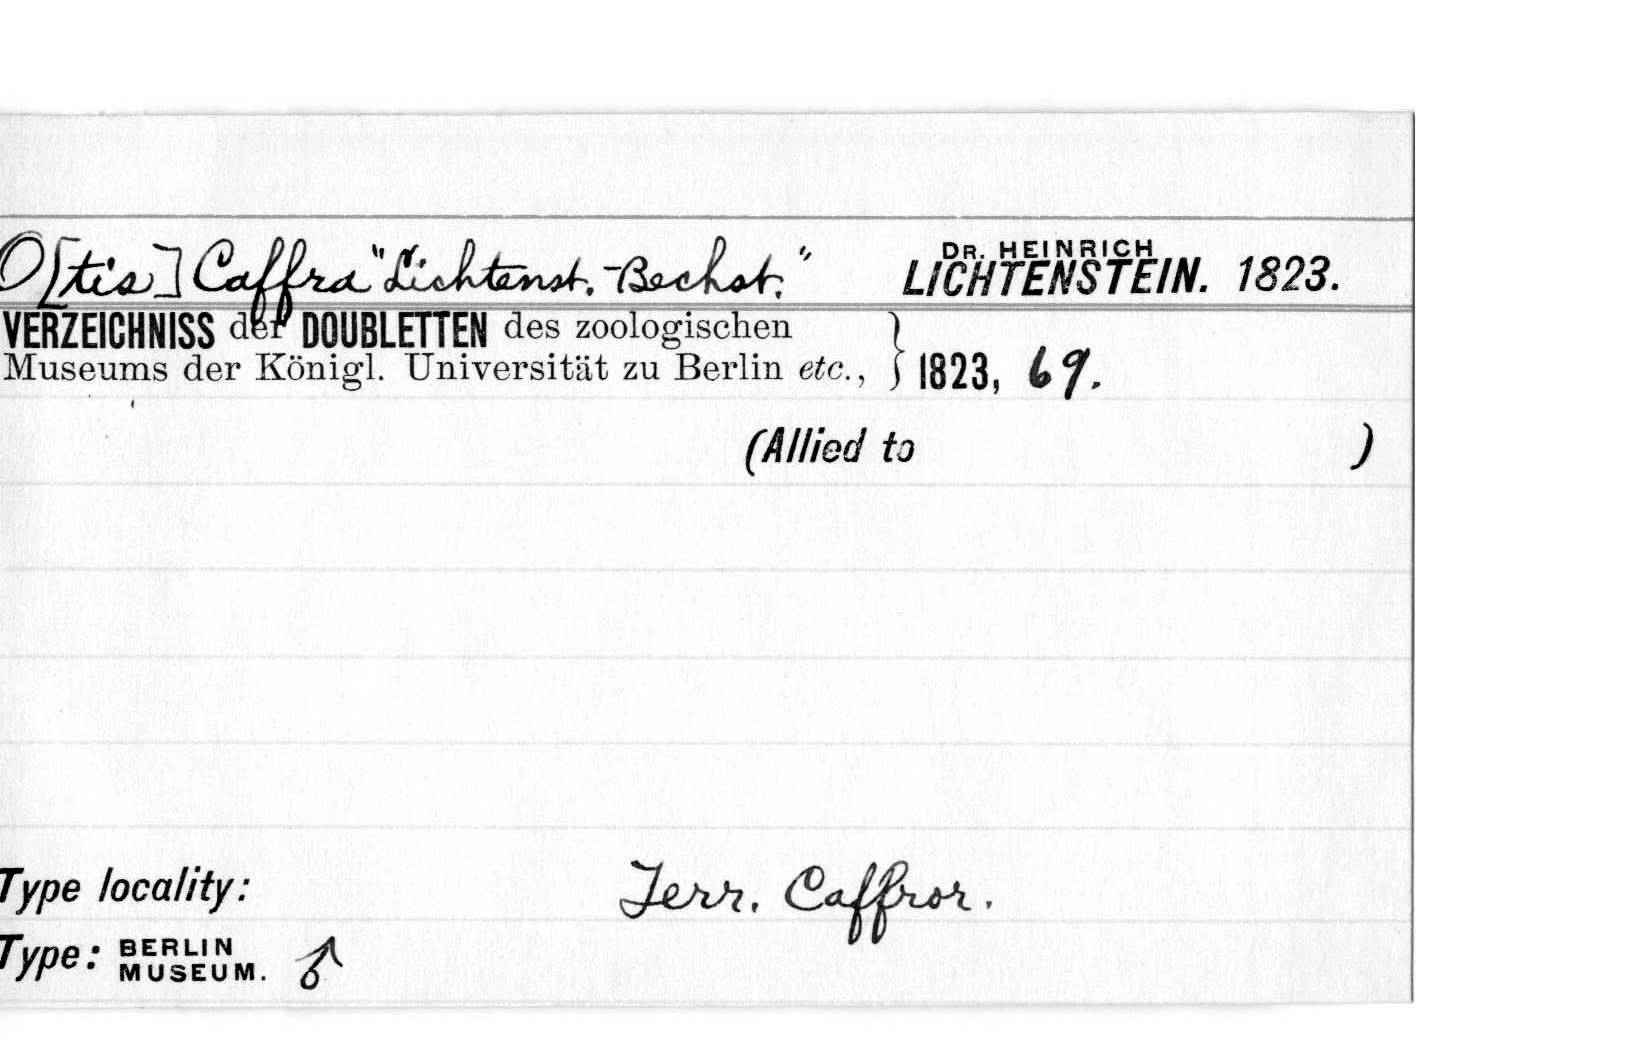 O[tis] Caffra "Lichtenst.-Bechst." DR. HEINRICH LICHTENSTEIN. 1823.
VERZEICHNISS der DOUBLETTEN des zoologischen
Museums der Königl. Universität zu Berlin etc., } 1823, 69.
(Allied to )
Type locality: Terr. Caffror.
Type: BERLIN MUSEUM. ♂